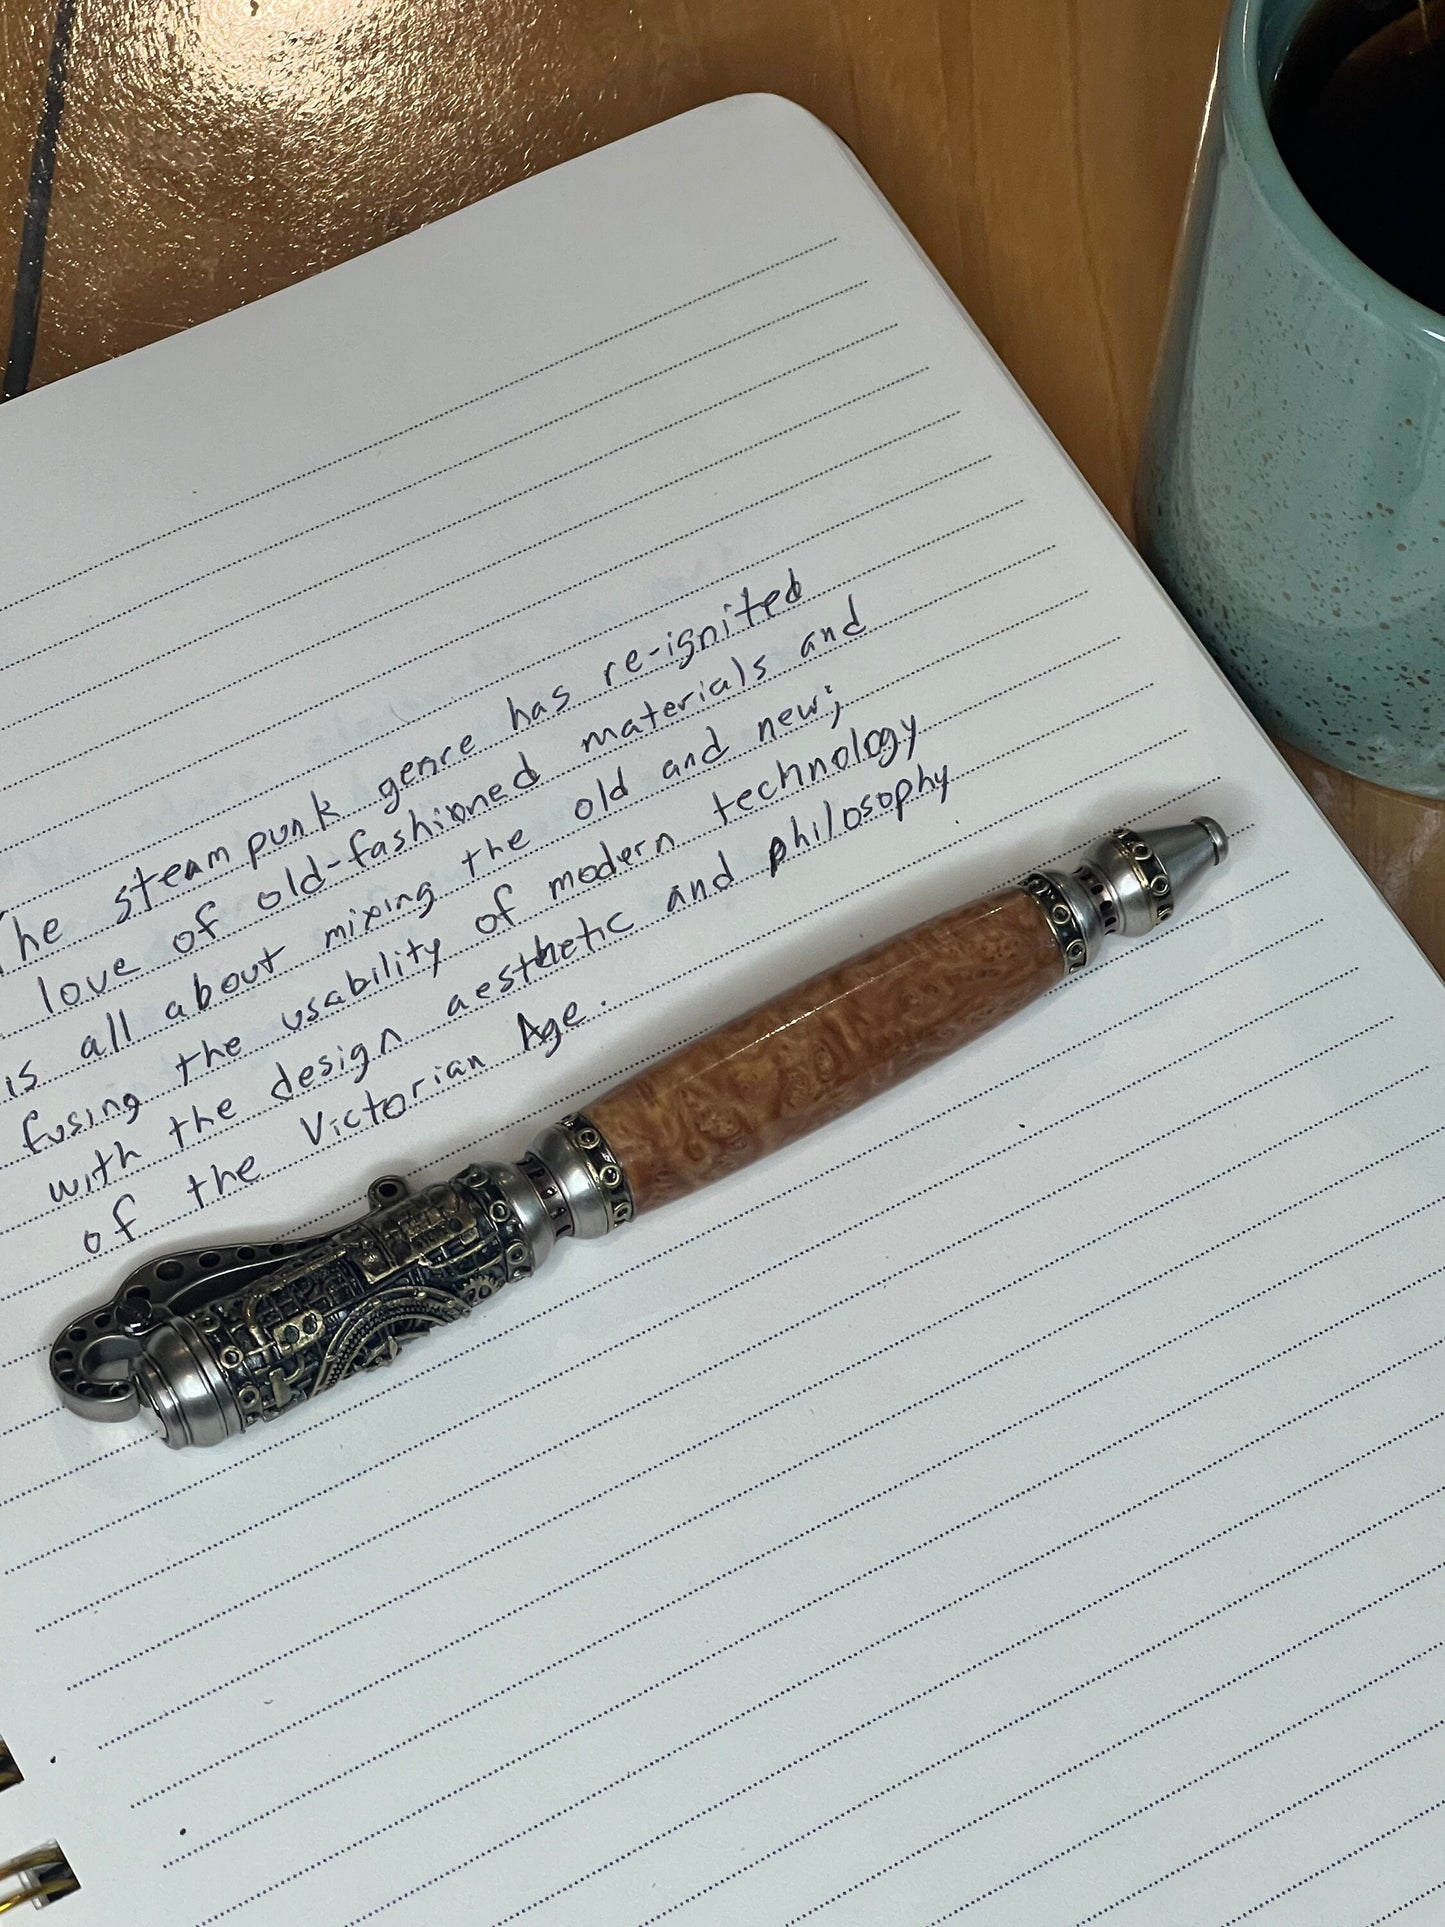 The steampunk genre has re-ignited
love of old-fashioned materials and
is all about mixing the old and new;
fusing the usability of modern technology
with the design aesthetic and philosophy
of the Victorian Age.